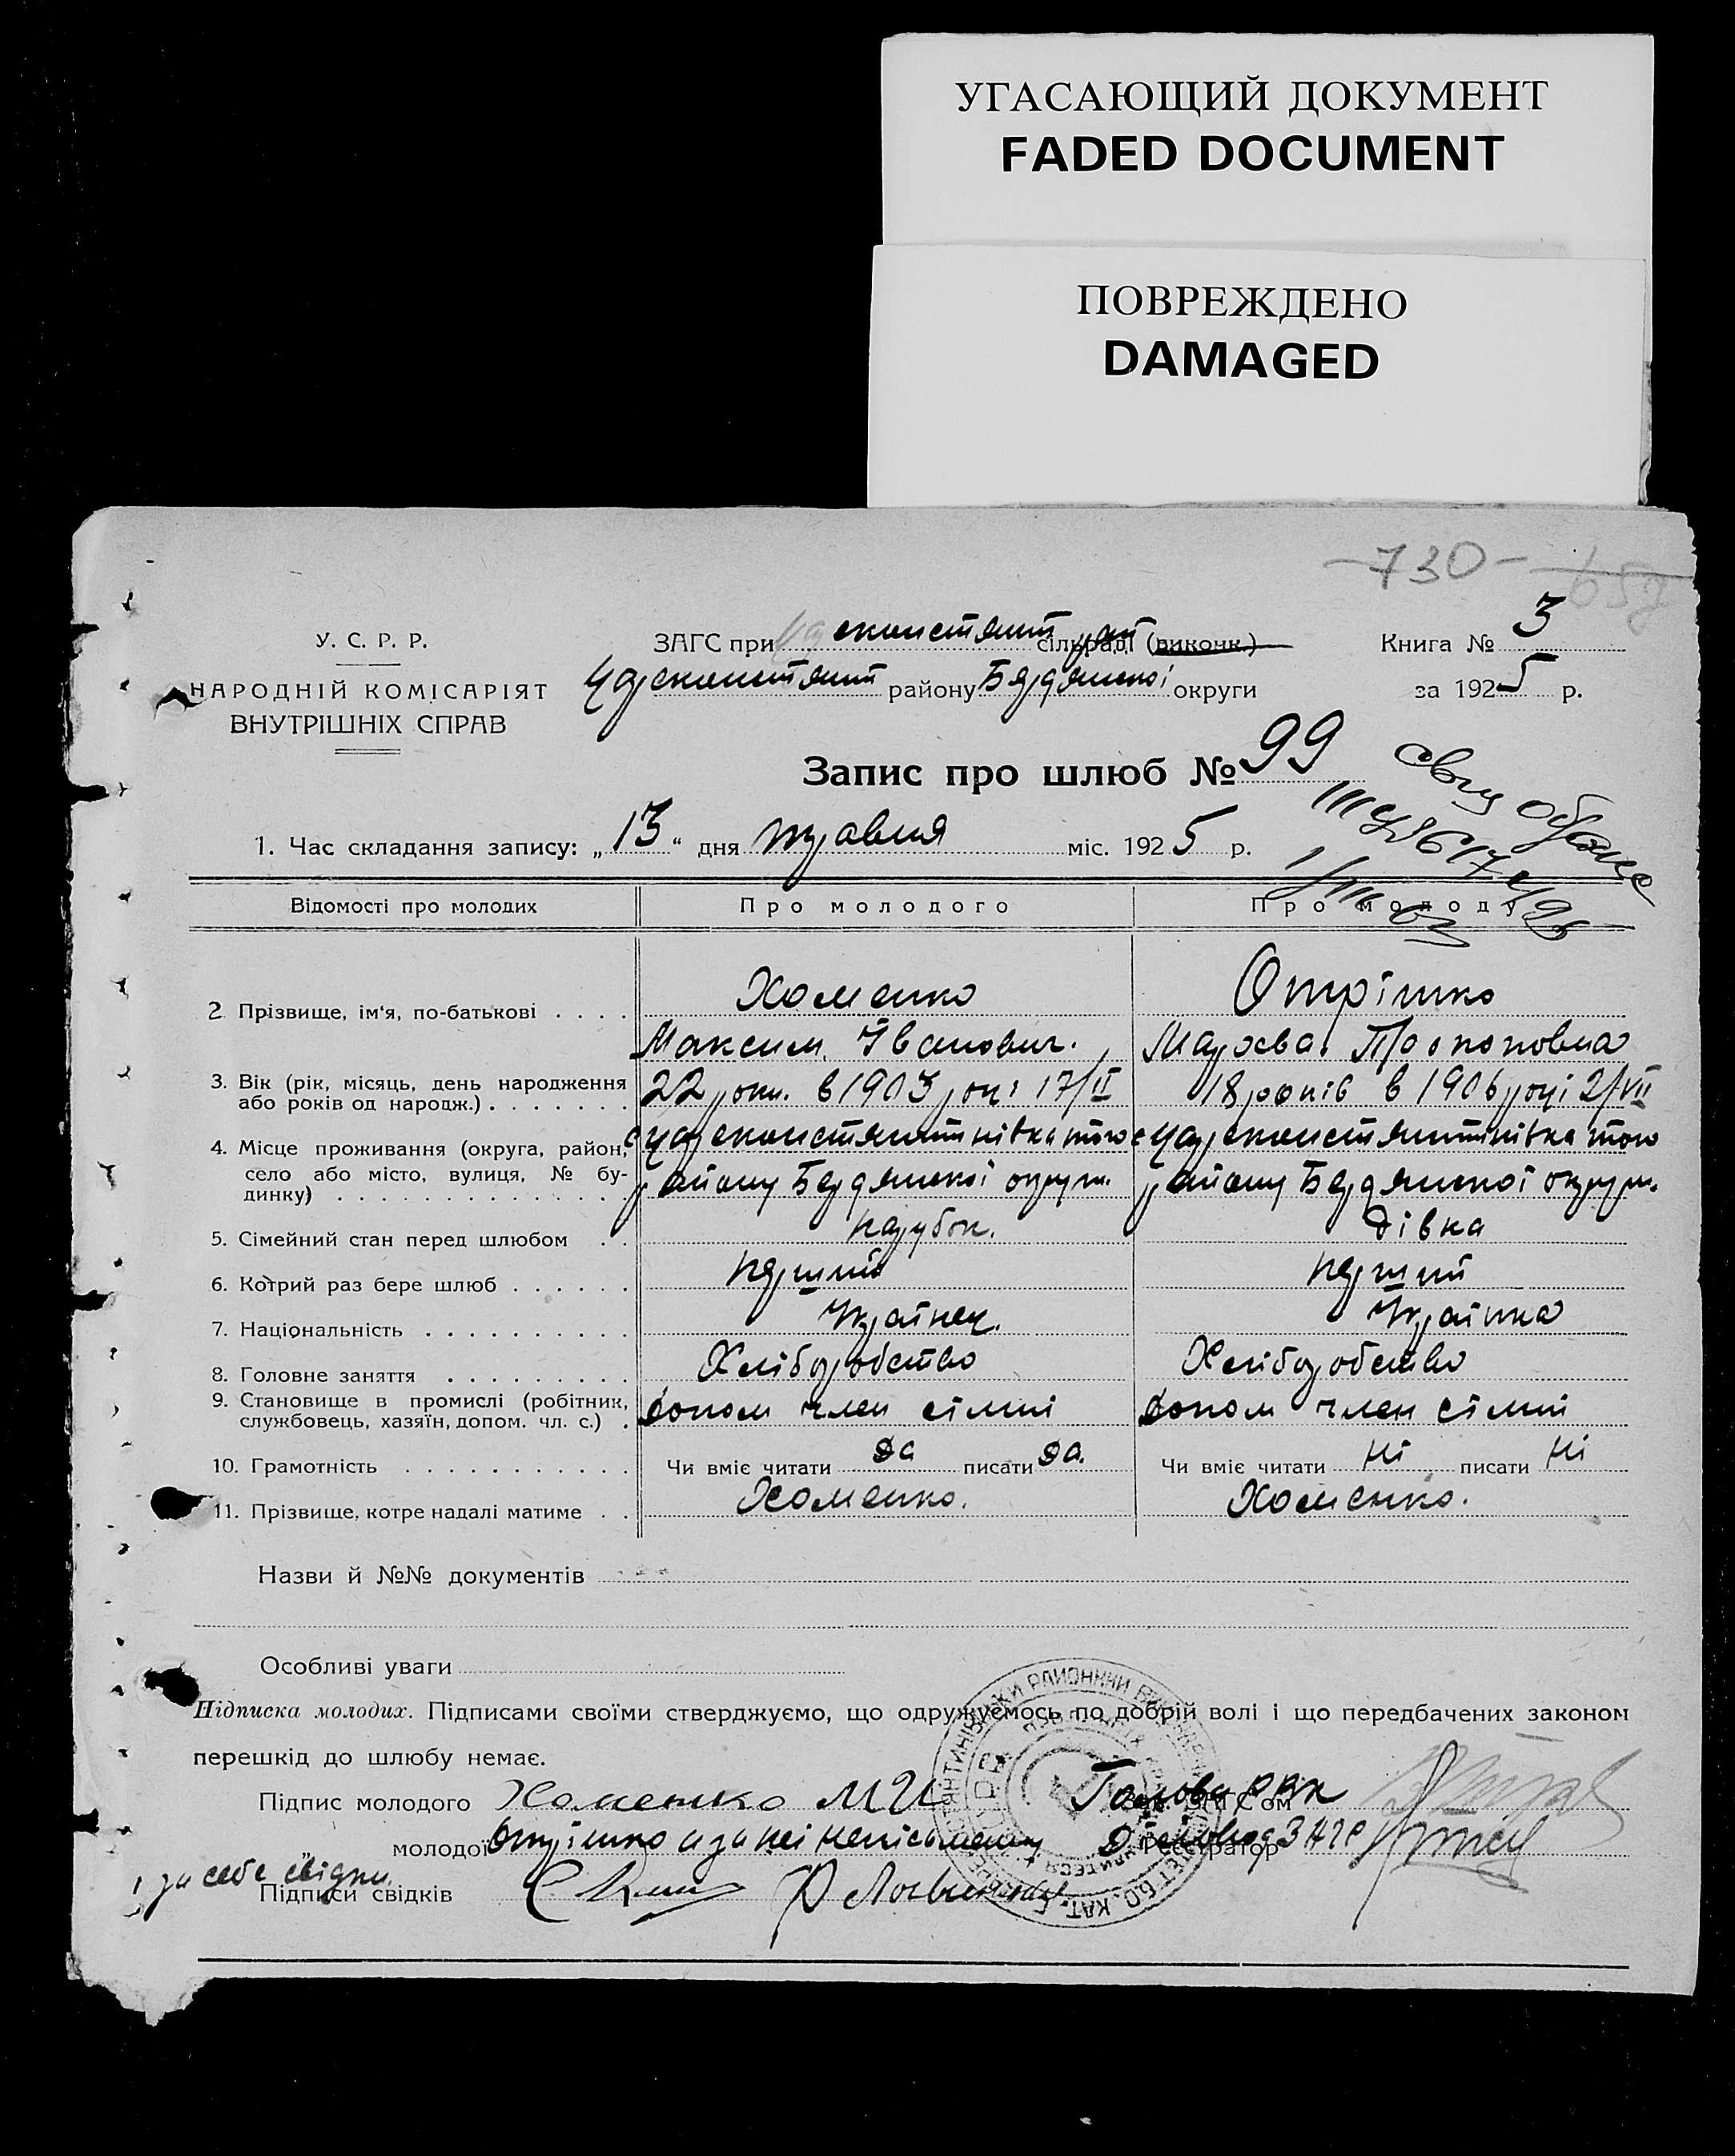 УГАСАЮЩИЙ ДОКУМЕНТ
FADED DOCUMENT
ПОВРЕЖДЕНО
DAMAGED
—730—
У. С. Р. Р.
НАРОДНІЙ КОМІСАРІЯТ
ВНУТРІШНІХ СПРАВ
ЗАГС при Цареконстянт сільраді (виконк.)
Цареконстянт району Бердянської округи
Книга № 3
за 1925 р.
Запис про шлюб № 99
1. Час складання запису: „13“ дня травня міс. 1925 р.
Відомості про молодих Про молодого Про молоду
2 Прізвище, ім'я, по-батькові Хоменко Отрішко
Максим Іванович. Мархва Прокоповна
3. Вік (рік, місяць, день народження або років од народж.) 22 роки. в 1903 році 17/II 18 років в 1906 році 2/VII
4. Місце проживання (округа, район, село або місто, вулиця, № будинку) с Цареконстянтинівка того с Цареконстянтинівка того
району Бердянської округи. району Бердянської округи.
5. Сімейний стан перед шлюбом парубок. дівка
6. Котрий раз бере шлюб перший перший
7. Національність Українец. Українка
8. Головне заняття Хліборобство Хліборобство
9. Становище в промислі (робітник, службовець, хазяїн, допом. чл. с.) допом член сімьї допом член сімьї
10. Грамотність Чи вміє читати да писати да. Чи вміє читати ні писати ні
11. Прізвище, котре надалі матиме Хоменко. Хоменко.
Назви й №№ документів
Особливі уваги
Підписка молодих. Підписами своїми стверджуємо, що одружуємось по добрій волі і що передбачених законом
перешкід до шлюбу немає.
Підпис молодого Хоменко М И Голова РВК
Зав. ЗАГС'ом
молодої Отрішко а за неї неписьменну Діловод ЗАГС
Реєстратор
і за себе свідки
Підписи свідків